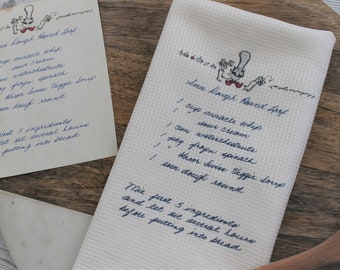 Sour Dough Round Loaf
cup miracle whip
sour cream
can waterchestnuts
pkg frozn spinach
Knorr Swiss Veggie Soup
sour douf round
Mix first 5 ingredients
and let set several hours
before putting into bread
Sour Dough Round Loaf
1 cup miracle whip
1 " sour cream
1 can waterchestnuts
1 pkg frozn spinach
1 " Knorr Swiss Veggie Soup
1 sour douf round
Mix first 5 ingredients
and let set several hours
before putting into bread